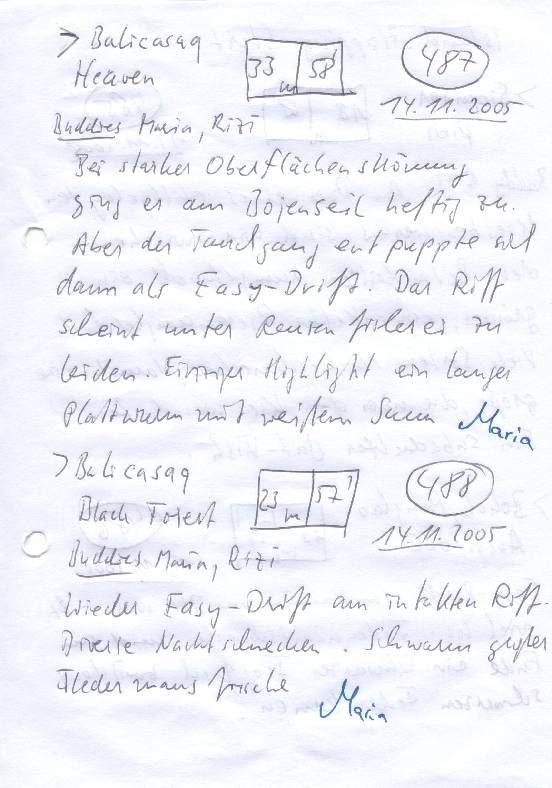 > Balicasag 33 m 58' 487
Heaven 14.11.2005
Buddies Maria, Rizi
Bei starker Oberflächenströmung
ging es am Bojenseil heftig zu.
Aber der Tauchgang entpuppte sich
dann als Easy-Drift. Das Riff
scheint unter Reusenfischerei zu
leiden. Einziges Highlight ein langer
Plattwurm mit weißem Saum Maria
> Balicasag 23 m 57' 488
Black Forest 14.11.2005
Buddies Maria, Rizi
Wieder Easy-Drift am intakten Riff.
Diverse Nachtschnecken. Schwarm großer
Fledermausfische
Maria